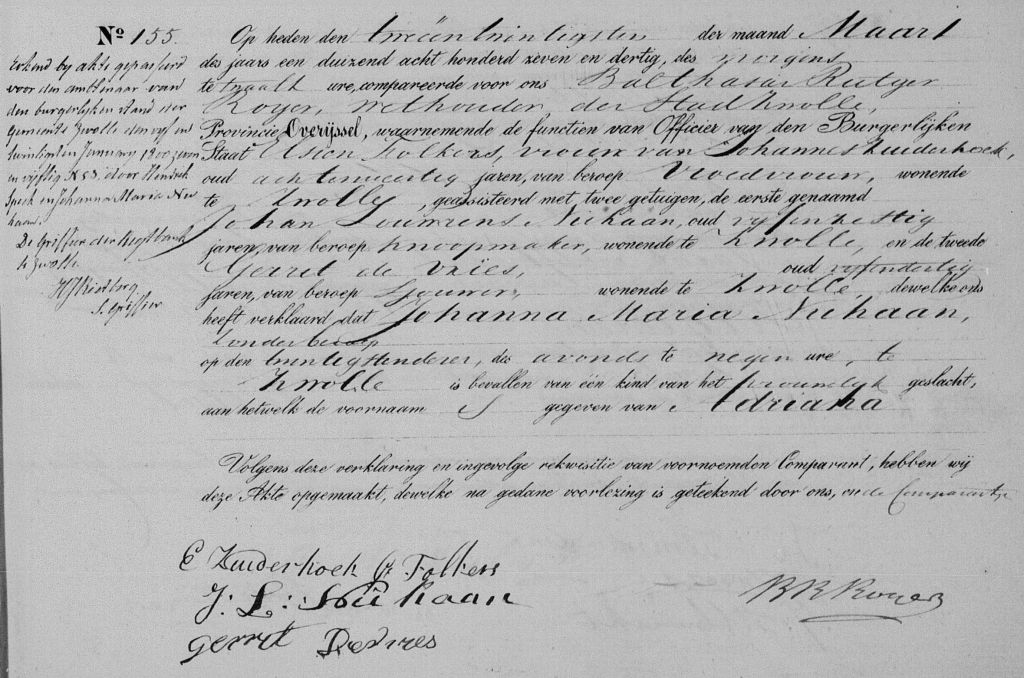 Nº 155.
Erkend by akte gepasseerd
voor den ambtenaar van
den burgerlyken stand der
Gemeente Zwolle den vyf en
twintigsten January 1800 zeven
en vyftig N 53. door Hendrik
Speek en Johanna Maria Nie
haan.
De Griffier der Regtbank
te Zwolle
S. Griffier
Op heden den tweëentwintigsten der maand Maart
des jaars een duizend acht honderd zeven en dertig, des morgens
te twaalf ure, compareerde voor ons Balthasar Rutger
Royer, Wethouder der Stad Zwolle,
Provincie Overijssel, waarnemende de functien van Officier van den Burgerlijken
Staat Elsien Folkers, vrouw van Johannes Zuiderhoek,
oud achtenveertig jaren, van beroep Vroedvrouw, wonende
te Zwolle, geässisteerd met twee getuigen, de eerste genaamd
Johan Lourens Niehaan, oud vyfenzestig
jaren, van beroep knoopmaker, wonende te Zwolle, en de tweede
Gerret de Vries, oud vyfendertig
jaren, van beroep Sjouwer, wonende te Zwolle, dewelke ons
heeft verklaard dat Johanna Maria Niehaan,
zonder beroep
op den twintigsten dezer, des avonds te negen ure, te
Zwolle is bevallen van één kind van het vrouwelyk geslacht,
aan hetwelk de voornaam gegeven van Adriana
Volgens deze verklaring en ingevolge rekwisitie van voornoemden Comparant, hebben wij
deze Akte opgemaakt, dewelke na gedane voorlezing is geteekend door ons, en de Comparanten
E Zuiderhoek G Folkers
J: L: Niehaan
gerrit Devries
B R Royer